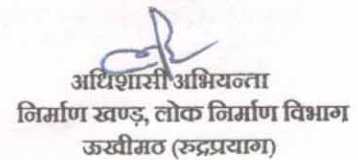 अधिशासी अभियन्ता
निर्माण खण्ड, लोक निर्माण विभाग
ऊखीमठ (रुद्रप्रयाग)